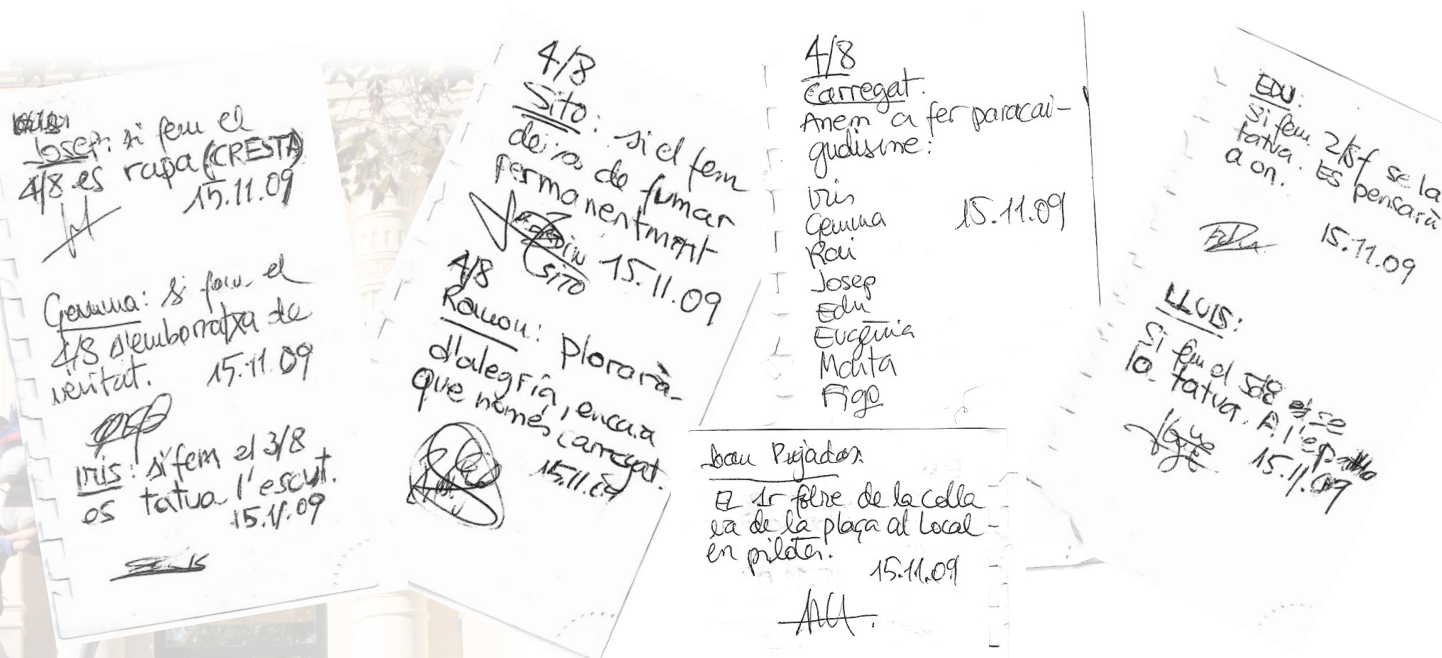 Josep: si fem el
4/8 es rapa (CRESTA)
15.11.09
Gemma: si fem el
4/8 s'emborratxa de
veritat. 15.11.09
Iris: si fem el 3/8
es tatua l'escut.
15.11.09
4/8
Sito: si el fem
deixa de fumar
permanentment
SITO 15.11.09
4/8
Ramon: Plorarà
d'alegría, encara
que només carregat.
15.11.09
4/8
Carregat.
Anem a fer paracai-
gudisme:
Iris
Gemma 15.11.09
Roi
Josep
Edu
Eugènia
Monta
Figo
Joan Pujadas:
El 1r folre de la colla
va de la plaça al local
en pilotes.
15.11.09
EDU:
Si fem 2/8f se la
tatua. ES pensarà
a on.
Edu 15.11.09
LLUIS:
Si fem el 5d8 se
lo tatua. A l'
15.11.09